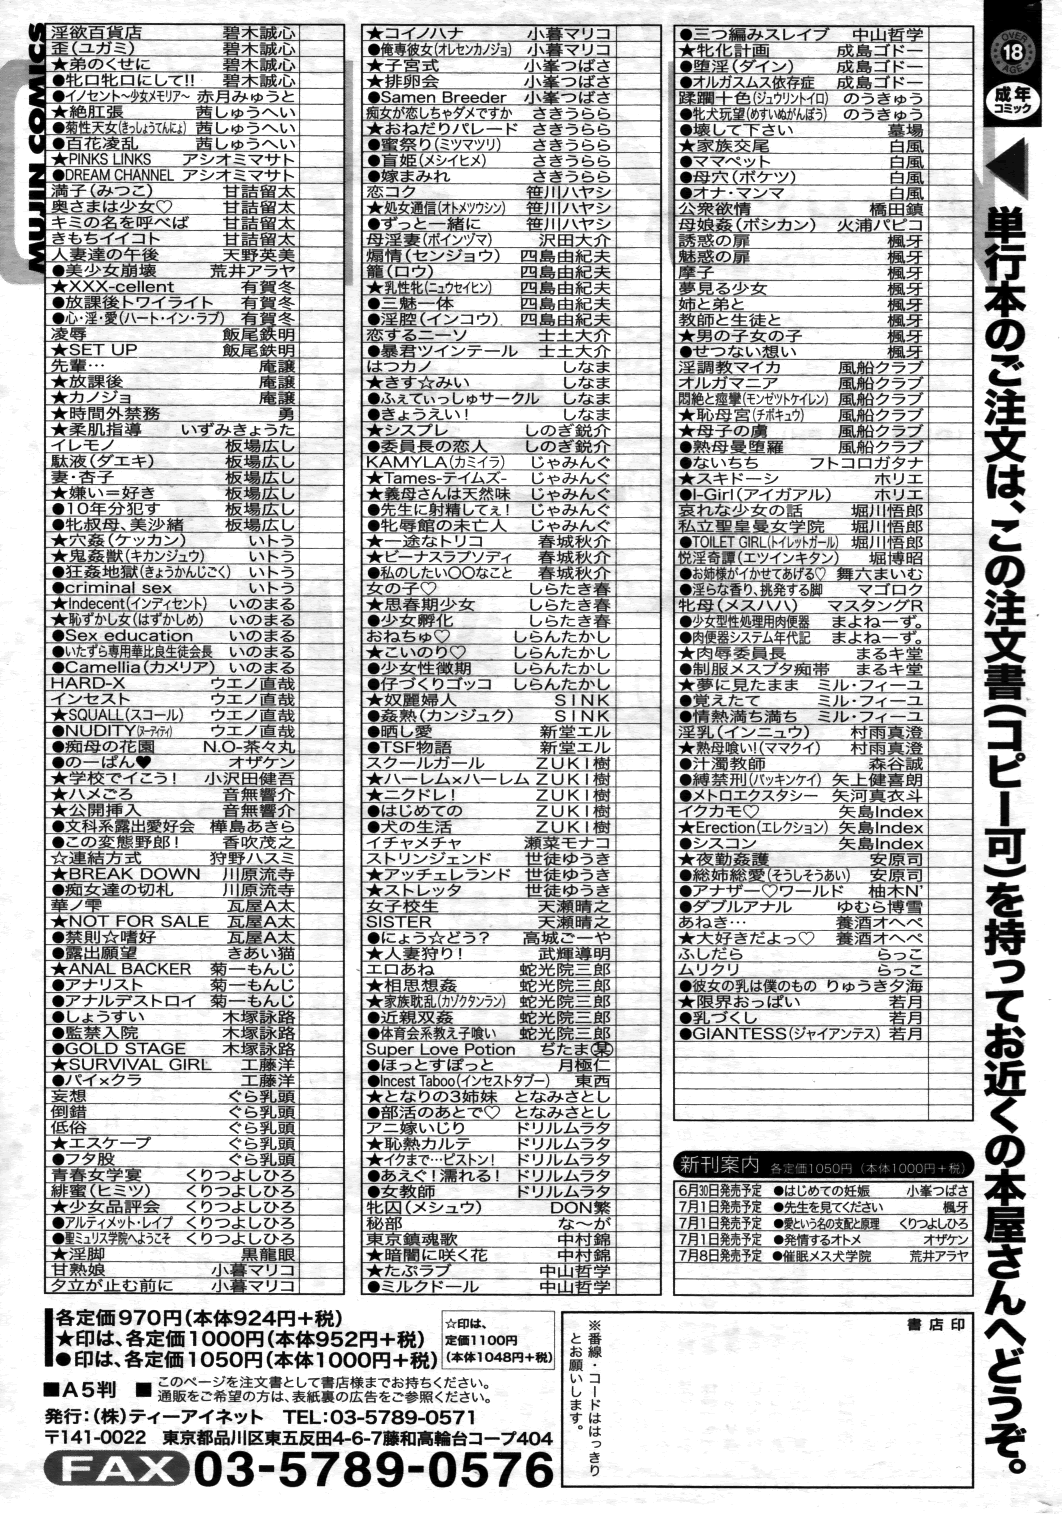 MUJIN COMICS
淫欲百貨店 碧木誠心
歪(ユガミ) 碧木誠心
★弟のくせに 碧木誠心
●牝口牝口にして!! 碧木誠心
●イノセント〜少女メモリア〜 赤月みゅうと
★絶肛張 茜しゅうへい
●菊性天女(きっしょうてんにょ) 茜しゅうへい
●百花凌乱 茜しゅうへい
★PINKS LINKS アシオミマサト
●DREAM CHANNEL アシオミマサト
満子(みつこ) 甘詰留太
奥さまは少女♡ 甘詰留太
キミの名を呼べば 甘詰留太
きもちイイコト 甘詰留太
人妻達の午後 天野英美
●美少女崩壊 荒井アラヤ
★XXX-cellent 有賀冬
●放課後トワイライト 有賀冬
●心・淫・愛(ハート・イン・ラブ) 有賀冬
凌辱 飯尾鉄明
★SET UP 飯尾鉄明
先輩… 庵譲
★放課後 庵譲
★カノジョ 庵譲
★時間外禁務 勇
★柔肌指導 いずみきょうた
イレモノ 板場広し
駄液(ダエキ) 板場広し
妻・杏子 板場広し
★嫌い=好き 板場広し
●10年分犯す 板場広し
●牝叔母、美沙緒 板場広し
★穴姦(ケッカン) いトう
★鬼姦獣(キカンジュウ) いトう
●狂姦地獄(きょうかんじごく) いトう
●criminal sex いトう
★Indecent(インディセント) いのまる
★恥ずかし女(はずかしめ) いのまる
●Sex education いのまる
●いたずら専用華比良生徒会長 いのまる
●Camellia(カメリア) いのまる
HARD-X ウエノ直哉
インセスト ウエノ直哉
★SQUALL(スコール) ウエノ直哉
●NUDITY(ヌーディティ) ウエノ直哉
●痴母の花園 N.O-茶々丸
●のーぱん♥ オザケン
★学校でイこう! 小沢田健吾
★ハメごろ 音無響介
★公開挿入 音無響介
●文科系露出愛好会 樺島あきら
●この変態野郎! 香吹茂之
☆連結方式 狩野ハスミ
★BREAK DOWN 川原流寺
●痴女達の切札 川原流寺
華ノ雫 瓦屋A太
★NOT FOR SALE 瓦屋A太
●禁則☆嗜好 瓦屋A太
●露出願望 きあい猫
★ANAL BACKER 菊一もんじ
●アナリスト 菊一もんじ
●アナルデストロイ 菊一もんじ
●しょうすい 木塚詠路
●監禁入院 木塚詠路
●GOLD STAGE 木塚詠路
★SURVIVAL GIRL 工藤洋
●パイ×クラ 工藤洋
妄想 ぐら乳頭
倒錯 ぐら乳頭
低俗 ぐら乳頭
★エスケープ ぐら乳頭
●フタ股 ぐら乳頭
青春女学宴 くりつよしひろ
緋蜜(ヒミツ) くりつよしひろ
★少女品評会 くりつよしひろ
●アルティメット・レイプ くりつよしひろ
●聖ミュリス学院へようこそ くりつよしひろ
★淫脚 黒龍眼
甘熟娘 小暮マリコ
夕立が止む前に 小暮マリコ
★コイノハナ 小暮マリコ
●俺専彼女(オレセンカノジョ) 小暮マリコ
★子宮式 小峯つばさ
★排卵会 小峯つばさ
●Samen Breeder 小峯つばさ
痴女が恋しちゃダメですか さきうらら
★おねだりパレード さきうらら
●蜜祭り(ミツマツリ) さきうらら
●盲姫(メシイヒメ) さきうらら
●嫁まみれ さきうらら
恋コク 笹川ハヤシ
★処女通信(オトメツウシン) 笹川ハヤシ
●ずっと一緒に 笹川ハヤシ
母淫妻(ボインヅマ) 沢田大介
煽情(センジョウ) 四島由紀夫
籠(ロウ) 四島由紀夫
★乳性牝(ニュウセイヒン) 四島由紀夫
●三魅一体 四島由紀夫
●淫腔(インコウ) 四島由紀夫
恋するニーソ 士土大介
●暴君ツインテール 士土大介
はつカノ しなま
★きす☆みい しなま
●ふぇてぃっしゅサークル しなま
●きょうえい! しなま
★シスプレ しのぎ鋭介
●委員長の恋人 しのぎ鋭介
KAMYLA(カミイラ) じゃみんぐ
★Tames-テイムズ- じゃみんぐ
★義母さんは天然味 じゃみんぐ
●先生に射精してぇ! じゃみんぐ
●牝辱館の未亡人 じゃみんぐ
★一途なトリコ 春城秋介
★ビーナスラプソディ 春城秋介
●私のしたい〇〇なこと 春城秋介
女の子♡ しらたき春
★思春期少女 しらたき春
●少女孵化 しらたき春
おねちゅ♡ しらんたかし
★こいのり♡ しらんたかし
●少女性徴期 しらんたかし
●仔づくりゴッコ しらんたかし
★奴麗婦人 SINK
●姦熟(カンジュク) SINK
●晒し愛 新堂エル
●TSF物語 新堂エル
スクールガール ZUKI樹
★ハーレム×ハーレム ZUKI樹
★ニクドレ! ZUKI樹
●はじめての ZUKI樹
●犬の生活 ZUKI樹
イチャメチャ 瀬菜モナコ
ストリンジェンド 世徒ゆうき
★アッチェレランド 世徒ゆうき
★ストレッタ 世徒ゆうき
女子校生 天瀬晴之
SISTER 天瀬晴之
●にょう☆どう? 高城ごーや
★人妻狩り! 武輝導明
エロあね 蛇光院三郎
★相思想姦 蛇光院三郎
★家族耽乱(カゾクタンラン) 蛇光院三郎
●近親双姦 蛇光院三郎
●体育会系教え子喰い 蛇光院三郎
Super Love Potion ぢたま㊙
●ほっとすぽっと 月極仁
●Incest Taboo(インセストタブー) 東西
★となりの3姉妹 となみさとし
●部活のあとで♡ となみさとし
アニ嫁いじり ドリルムラタ
★恥熱カルテ ドリルムラタ
★イクまで…ピストン! ドリルムラタ
●あえぐ!濡れる! ドリルムラタ
●女教師 ドリルムラタ
牝囚(メシュウ) DON繁
秘部 な〜が
東京鎮魂歌 中村錦
★暗闇に咲く花 中村錦
★たぷラブ 中山哲学
●ミルクドール 中山哲学
●三つ編みスレイブ 中山哲学
★牝化計画 成島ゴドー
●堕淫(ダイン) 成島ゴドー
●オルガスムス依存症 成島ゴドー
蹂躙十色(ジュウリントイロ) のうきゅう
●牝犬玩望(めすいぬがんぼう) のうきゅう
●壊して下さい 墓場
★家族交尾 白風
●ママペット 白風
●母穴(ボケツ) 白風
●オナ・マンマ 白風
公衆欲情 橋田鎮
母娘姦(ボシカン) 火浦パピコ
誘惑の扉 楓牙
魅惑の扉 楓牙
摩子 楓牙
夢見る少女 楓牙
姉と弟と 楓牙
教師と生徒と 楓牙
★男の子女の子 楓牙
●せつない想い 楓牙
淫調教マイカ 風船クラブ
オルガマニア 風船クラブ
悶絶と痙攣(モンゼツトケイレン) 風船クラブ
★恥母宮(チボキュウ) 風船クラブ
★母子の虜 風船クラブ
●熟母曼堕羅 風船クラブ
●ないちち フトコロガタナ
★スキドーシ ホリエ
●I-Girl(アイガアル) ホリエ
哀れな少女の話 堀川悟郎
私立聖皇曼女学院 堀川悟郎
●TOILET GIRL(トイレットガール) 堀川悟郎
悦淫奇譚(エツインキタン) 堀博昭
●お姉様がイかせてあげる♡ 舞六まいむ
●淫らな香り、挑発する脚 マゴロク
牝母(メスハハ) マスタングR
●少女型性処理用肉便器 まよねーず。
●肉便器システム年代記 まよねーず。
★肉辱委員長 まるキ堂
●制服メスブタ痴帯 まるキ堂
★夢に見たまま ミル・フィーユ
●覚えたて ミル・フィーユ
●情熱満ち満ち ミル・フィーユ
淫乳(インニュウ) 村雨真澄
★熟母喰い!(ママクイ) 村雨真澄
●汁濁教師 森谷誠
●縛禁刑(バッキンケイ) 矢上健喜朗
●メトロエクスタシー 矢河真衣斗
イクカモ♡ 矢島Index
★Erection(エレクション) 矢島Index
●シスコン 矢島Index
★夜勤姦護 安原司
●総姉総愛(そうしそうあい) 安原司
●アナザー♡ワールド 柚木N'
●ダブルアナル ゆむら博雪
あねき… 養酒オヘペ
★大好きだよっ♡ 養酒オヘペ
ふしだら らっこ
ムリクリ らっこ
●彼女の乳は僕のもの りゅうき夕海
★限界おっぱい 若月
●乳づくし 若月
●GIANTESS(ジャイアンテス) 若月
新刊案内 各定価1050円(本体1000円+税)
6月30日発売予定 ●はじめての妊娠 小峯つばさ
7月1日発売予定 ●先生を見てください 楓牙
7月1日発売予定 ●愛という名の支配と原理 くりつよしひろ
7月1日発売予定 ●発情するオトメ オザケン
7月8日発売予定 ●催眠メス犬学院 荒井アラヤ
OVER 18 AGE
成年
コミック
単行本のご注文は、この注文書(コピー可)を持ってお近くの本屋さんへどうぞ。
各定価970円(本体924円+税)
★印は、各定価1000円(本体952円+税)
●印は、各定価1050円(本体1000円+税)
☆印は、
定価1100円
(本体1048円+税)
■A5判 ■このページを注文書として書店様までお持ちください。
通販をご希望の方は、表紙裏の広告をご参照ください。
発行:(株)ティーアイネット TEL:03-5789-0571
〒141-0022 東京都品川区東五反田4-6-7藤和高輪台コープ404
FAX 03-5789-0576
書店印
※番線・コードははっきり
とお願いします。